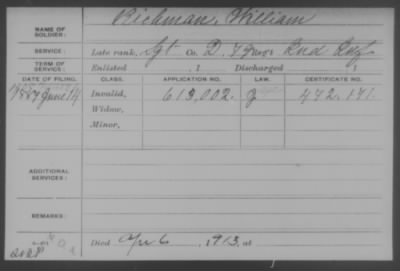 Richman, William
NAME OF SOLDIER:
SERVICE: Late rank, Sgt Co. D, 79 Reg't Ind Inf
TERM OF SERVICE: Enlisted , 1 Discharged , 1
DATE OF FILING. CLASS. APPLICATION NO. LAW. CERTIFICATE NO.
1887 June 14 Invalid, 613,002. 472.171.
Widow,
Minor,
ADDITIONAL SERVICES:
REMARKS:
Died Apr 6, 1913, at